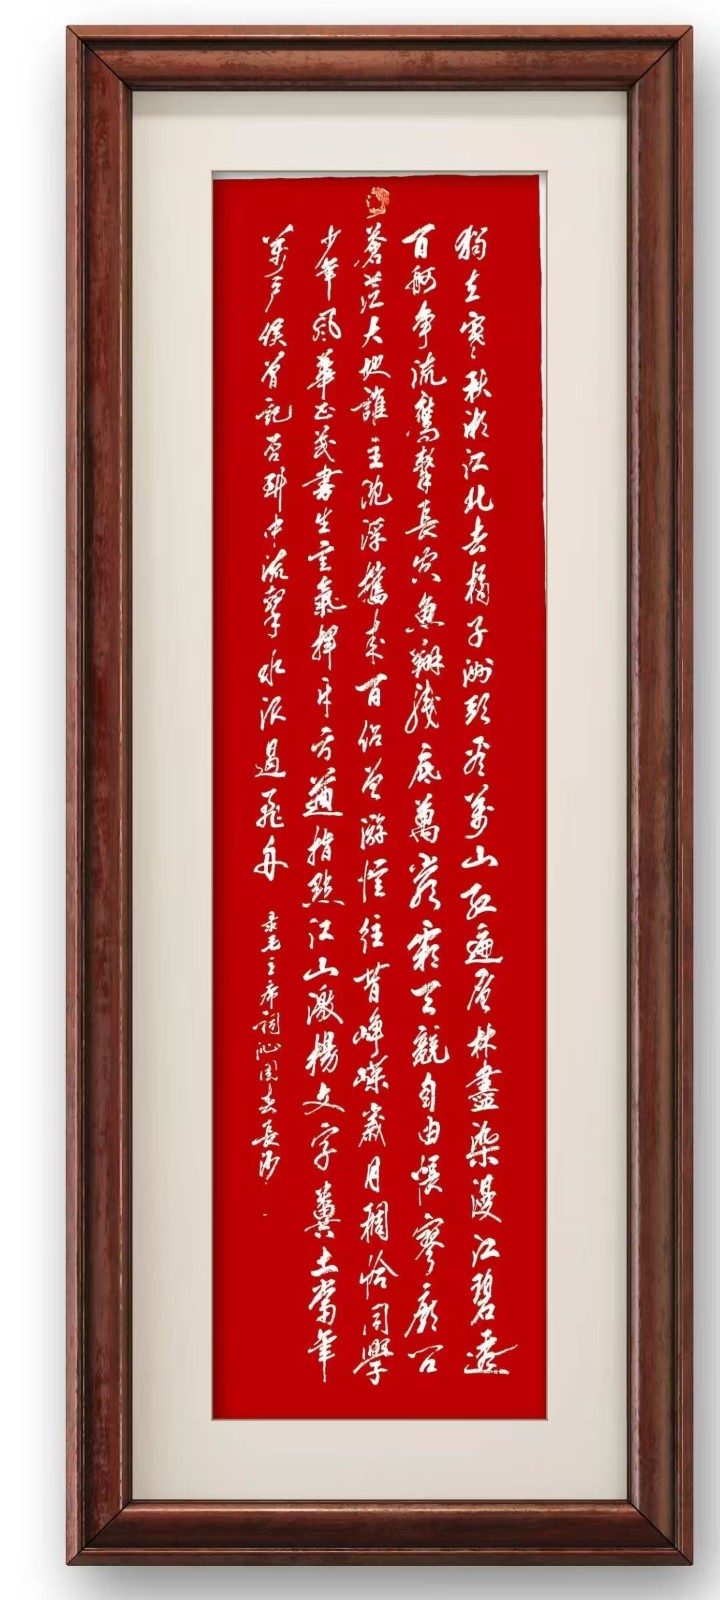 獨立寒秋湘江北去橘子洲頭看萬山紅遍層林盡染漫江碧透
百舸争流鷹擊長空魚翔淺底萬類霜天競自由悵寥廓問
蒼茫大地誰主沈浮攜來百侣曾游憶往昔崢嶸歲月稠恰同學
少年風華正茂書生意氣揮斥方遒指點江山激揚文字糞土當年
萬户侯曾記否到中流擊水浪遏飛舟
录毛主席詞沁園春長沙